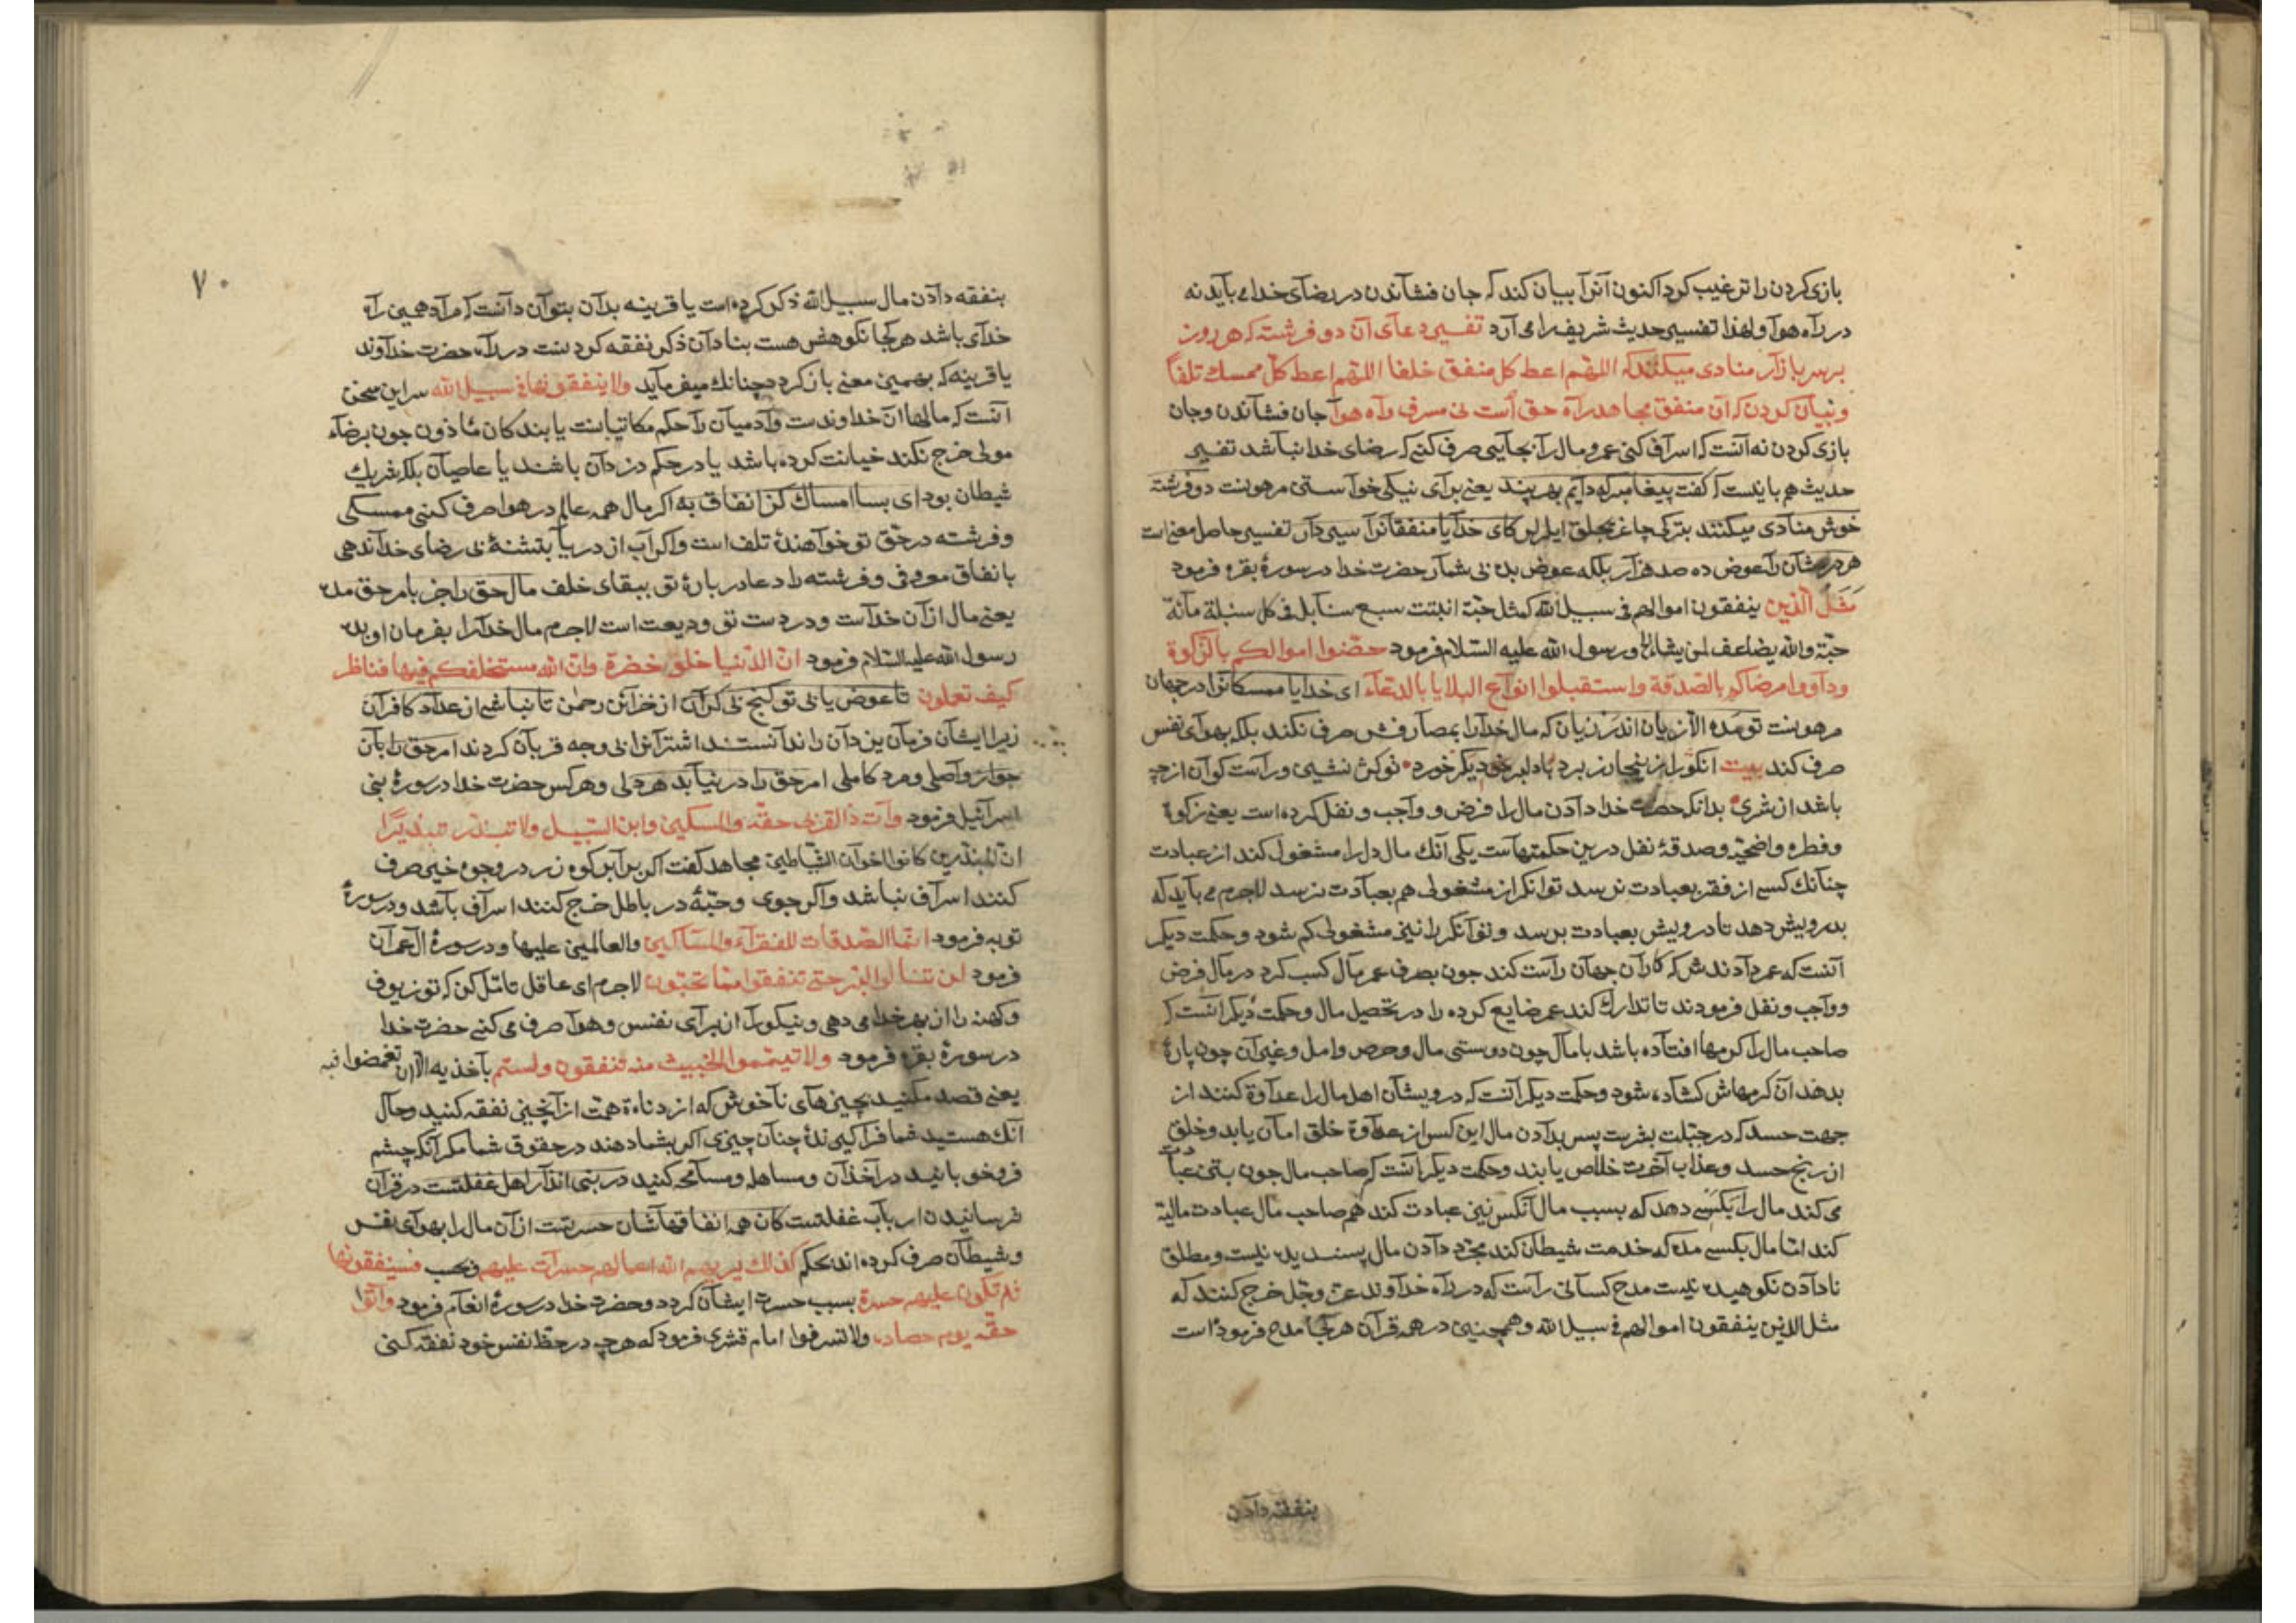 بازی کردن را ترغیب کرد اکنون آنرا بیان کند که جان فشاندن در رضای خدا می باید نه
در راه هوا و لهذا تفسیر حدیث شریف را می آرد تفسیر دعای آن دو فرشته که هر روز
بر سر بازار منادی میکنند که اللهم اعط کل منفق خلفا اللهم اعط کل ممسک تلفا
و بیان کردن که آن منفق مجاهد راه حق است نی مسرف راه هوا جان فشاندن و جان
بازی کردن نه آنست که اسراف کنی عمر و مال را بجایی صرف کنی که رضای خدا نباشد تفسیر
حدیث هم بایدست که گفت پیغامبر که دایم بهر پند یعنی برای نیکی خواستی مرهونت دو فرشته
خوش منادی میکنند کای خدایا منفقانرا سیر دار تفسیر حاصل معنی است
هر درمشان را عوض ده صد هزار بلکه عوض بده بی شمار حضرت خدا در سورهٔ بقره فرمود
مثل الذین ینفقون اموالهم فی سبیل الله کمثل حبة انبتت سبع سنابل فی کل سنبلة مائة
حبة والله یضاعف لمن یشاء و رسول الله علیه السلام فرمود حصنوا اموالکم بالزکوة
وداووا مرضاکم بالصدقة واستقبلوا انواع البلایا بالدعاء ای خدایا ممسکانرا در جهان
تو مده الا زیان اندر زیان که مال خدا را بمصارفش صرف نکند بلکه بهوای نفس
صرف کند بیت
باشد از شری بدانکه حضرت خدا دادن مال را فرض و واجب و نفل کرده است یعنی زکوة
و فطره و اضحیه و صدقهٔ نفل درین حکمتهاست یکی آنک مال دل را مشغول کند از عبادت
چنانک کسی از فقر بعبادت نرسد توانگر از مشغولی هم بعبادت نرسد لاجرم می باید که
بدرویش دهد تا درویش بعبادت برسد و توانگر را نیز مشغولی کم شود و حکمت دیگر
آنست که عمر دادندش که کار آن جهان راست کند چون بصرف عمر مال کسب کرد در مال فرض
و واجب و نفل فرمودند تا تدارک کند عمر ضایع کرده را در تحصیل مال و حکمت دیگر آنست که
صاحب مال را گرهها افتاده باشد با مال چون دوستی مال و حرص و امل و غیر آن چون پارهٔ
بدهد آن گرههاش گشاده شود و حکمت دیگر آنست که درویشان اهل مال را عداوة کنند از
جهت حسد که در جبلت بشریت پس بدادن مال این کس از عداوة خلق امان یابد و خلق
از رنج حسد و عذاب آخرت خلاص یابند و حکمت دیگر آنست که صاحب مال چون بتن عبادت
می کند مال را بکسی دهد که بسبب مال آنکس نیز عبادت کند هم صاحب مال عبادت مالیة
کند اما مال بکسی مده که خدمت شیطان کند مجرد دادن مال پسندیده نیست و مطلق
نادادن نکوهیده نیست مدح کسانی راست که در راه خداوند عز و جل خرج کنند که
مثل الذین ینفقون اموالهم فی سبیل الله و همچنین در همه قرآن هر کجا مدح فرموده است
بنفقه دادن
۷۰
بنفقه دادن مال سبیل الله ذکر کرده است یا قرینه بدان بتوان دانست که مراد همین راه
خدای باشد هر کجا نکوهش هست بنادان ذکر نفقه کردنست در راه حضرت خداوند
یا قرینه که بهمین معنی باز گردد چنانک میفرماید ولا ینفقونها فی سبیل الله سر این سخن
آنست که مالها آن خداوندست و آدمیان را حکم مکاتبانست یا بندکان مأذون چون برضاء
مولی خرج نکند خیانت کرده باشد یا در حکم دزدان باشند یا عاصیان بلکه شریک
شیطان بود ای بسا امساک کز انفاق به اکر مال همه عالم در هوا صرف کنی ممسکی
و فرشته در حق تو خواهندهٔ تلف است و اکر آب از دریا بتشنهٔ بی رضای خدا ندهی
با نفاق معروفی و فرشته را دعا در بارهٔ تو ببقای خلف مال حق را جز بامر حق مده
یعنی مال از آن خداست و در دست تو ودیعت است لاجرم مال خدا را بفرمان او بده
رسول الله علیه السلام فرمود ان الدنیا حلوة خضرة وان الله مستخلفکم فیها فناظر
کیف تعملون تا عوض یابی تو کنج بی کران از خزائن رحمن تا نباشی از عداد کافران
زیرا ایشان فرمان یزدان را ندانستند اشترانرا بی وجه قربان کردند امر حق را بآن
جواز واصلی و مرد کاملی امر حق را در نیابد هر دلی و هر کس حضرت خدا در سورهٔ بنی
اسرائیل فرمود وآت ذا القربی حقه والمسکین وابن السبیل ولا تبذر تبذیرا
ان المبذرین کانوا اخوان الشیاطین مجاهد کفت اکر برابر کوه زر در وجوه خیر صرف
کنند اسراف نباشد و اکر جوی و حبهٔ در باطل خرج کنند اسراف باشد و در سورهٔ
توبه فرمود انما الصدقات للفقراء والمساکین والعاملین علیها و در سورهٔ آل عمران
فرمود لن تنالوا البر حتی تنفقوا مما تحبون لاجرم ای عاقل تأمل کن که تو زیوف
و کهنه را از بهر خدا می دهی و نیکو را از برای نفس و هوا صرف می کنی حضرت خدا
در سورهٔ بقره فرمود ولا تیمموا الخبیث منه تنفقون ولستم بآخذیه الا ان تغمضوا فیه
یعنی قصد مکنید بچیزهای ناخوش که از دناءة همت از آنچیز نفقه کنید و حال
آنک هستید شما فراکیرندهٔ چنان چیزی اکر بشما دهند در حقوق شما مکر آنک چشم
فروخوابانید در اخذ آن و مساهله و مسامحه کنید در نبی انذار اهل غفلتست در قرآن
ترسانیدن ارباب غفلتست کان همه انفاقهاشان حسرتست از آن مال را بهوای نفس
و شیطان صرف کرده اند بحکم کذلک یریهم الله اعمالهم حسرات علیهم و بحسب فسینفقونها
ثم تکون علیهم حسرة بسبب حسرت ایشان گردد و حضرت خدا در سورهٔ انعام فرمود وآتوا
حقه یوم حصاده ولا تسرفوا امام قشری فرمود که هر چه در حظ نفس خود نفقه کنی